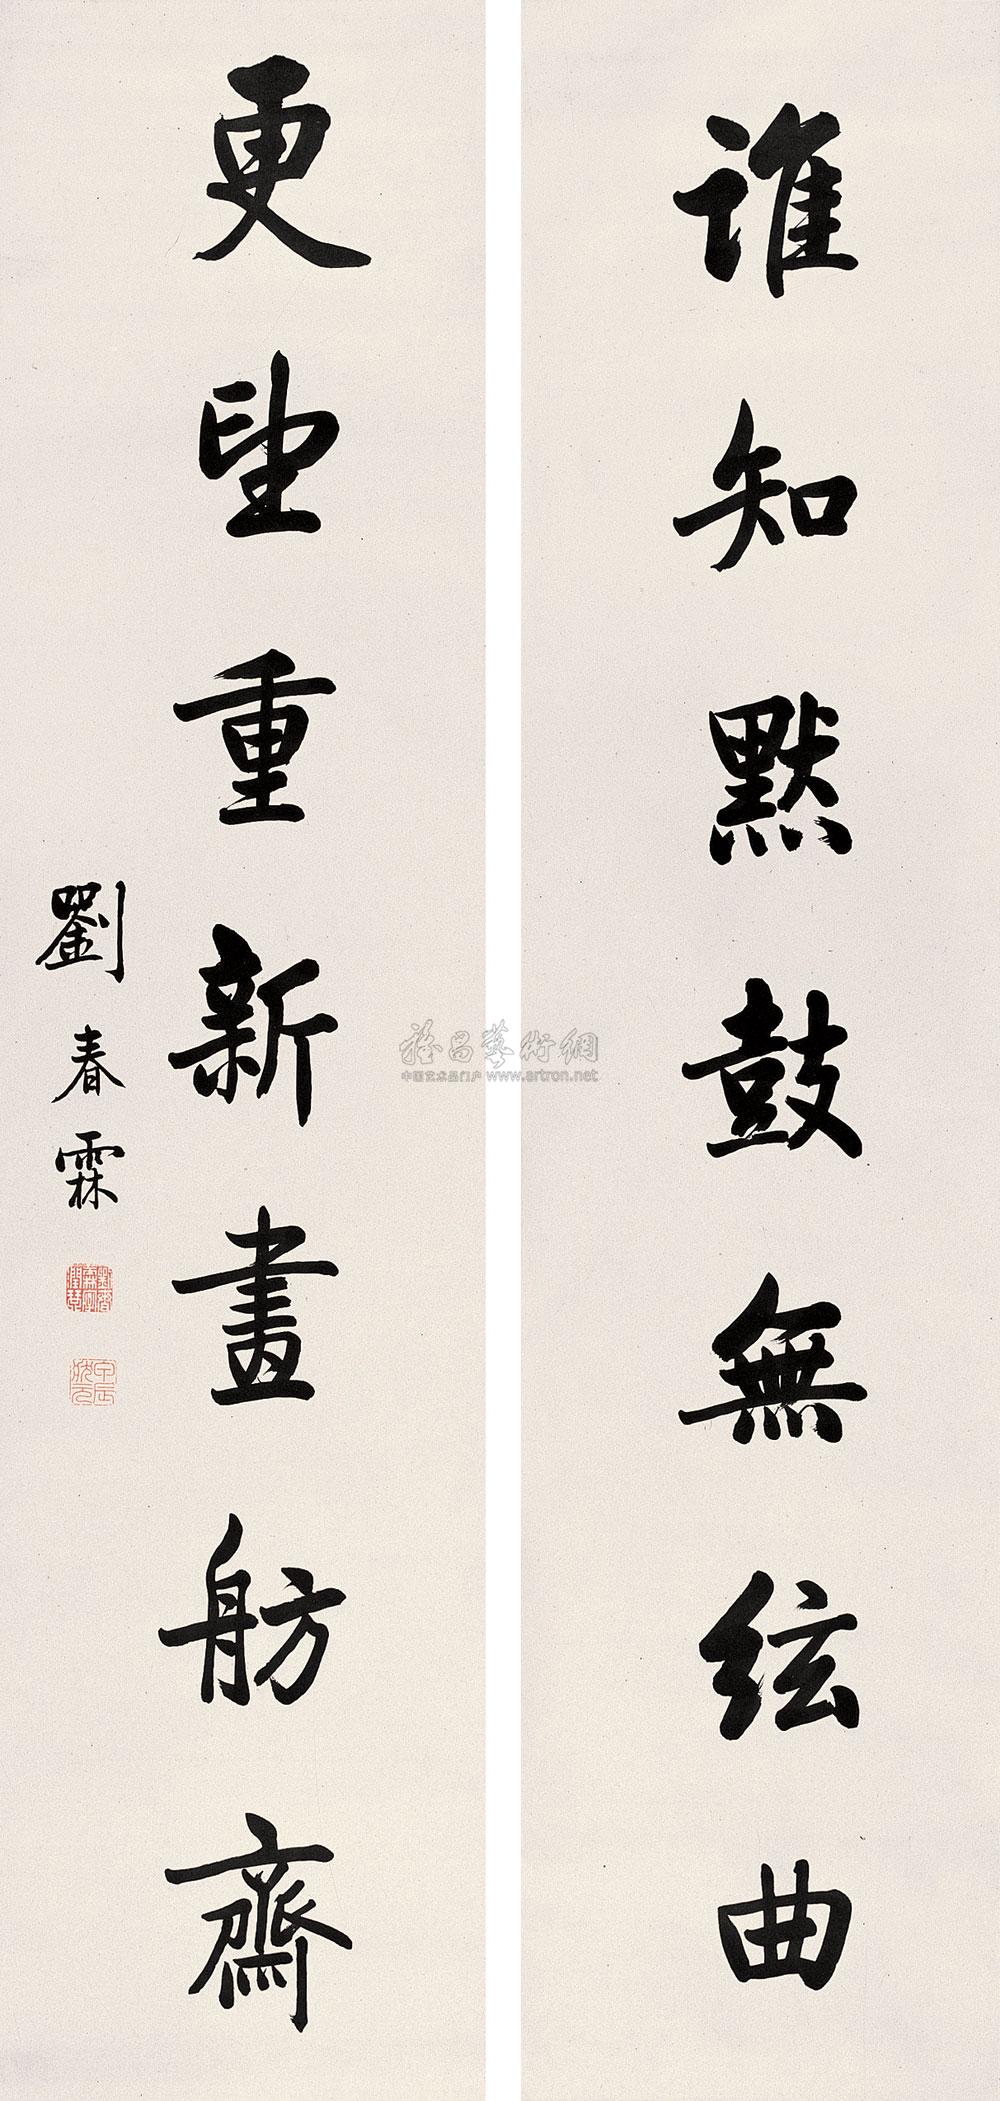 誰知默鼓無絃曲
更望重新畫舫齋
劉春霖
甲辰狀元
雅昌藝術網
中国艺术品门户 www.artron.net